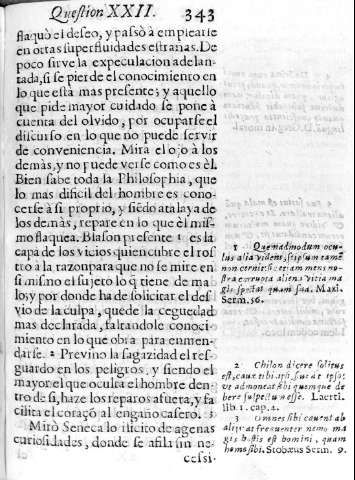 Question XXII. 343
flaquò el deseo, y passò a emplearse
en otras superfluidades estrañas. De
poco sirve la expeculacion adelan-
tada, si se pierde el conocimiento en
lo que està mas presente; y aquello
que pide mayor cuidado se pone à
cuenta del olvido, por ocuparse el
discurso en lo que no puede servir
de conveniencia. Mira el ojo à los
demàs, y no puede verse como es èl.
Bien sabe toda la Philosophia, que
lo mas dificil del hombre es cono-
cerse à si proprio, y siēdo atalaya de
los demàs, repare en lo que èl mis-
mo flaquea. Blason presente 1 es la
capa de los vicios quien cubre el ros-
tro à la razon para que no se mire en
si mismo el sujeto lo q̄ tiene de ma
lo, y por donde ha de solicitar el des
vio de la culpa, quede la ceguedad
mas declarada, faltandole conoci-
miento en lo que obra para enmen-
darse. 2 Previno la sagazidad el res-
guardo en los peligros, y siendo el
mayor el que oculta el hombre den-
tro de si, haze los reparos afuera, y fa
cilita el coraçō al engaño casero. 3
Mirò Seneca lo ilicito de agenas
curiosidades, donde se afila sin ne-
cessi-
1 Quemadmodum ocu-
lus alia videns, seipsum tamē
non cernit: sic etiam mens no-
stra errata aliena vitia ma
gis spectat quam sua. Maxi.
Serm. 56.
2 Chilon dicere solitus
est,
ve admoneat sibi quemque de
bere suspectum esse. Laerti.
lib. 1. cap. 4.
3 Omnes sibi cavent ab
alijs, at frequenter nemo ma
gis hostis est homini, quam
homo sibi. Stobæus Serm. 9.